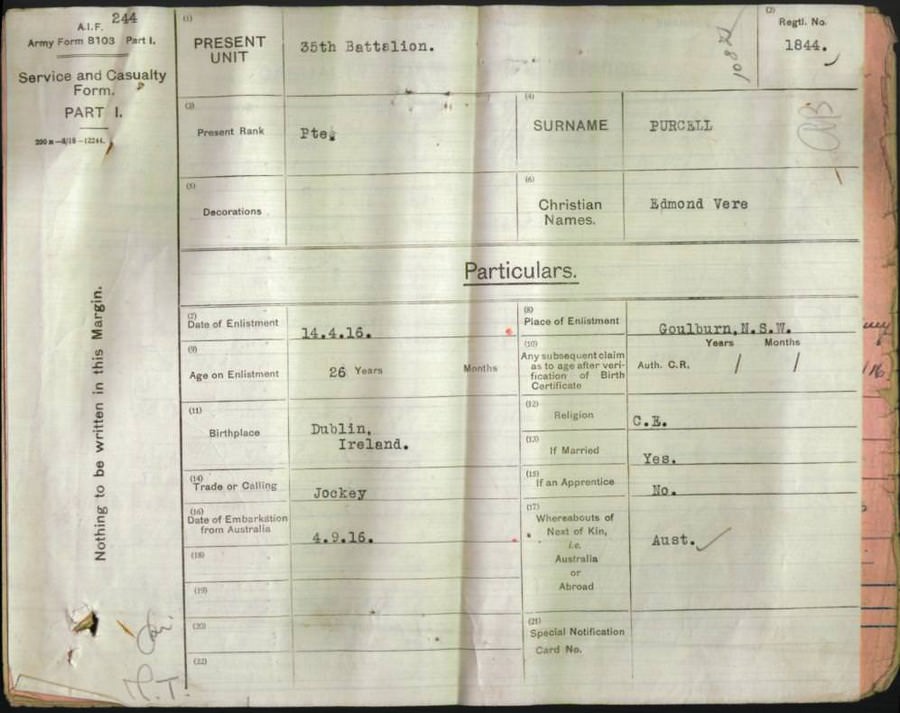 244
A.I.F.
Army Form B103 Part I.
Service and Casualty
Form.
PART I.
200 m—8/18—12244.
Nothing to be written in this Margin.
M.T.
(1)
PRESENT
UNIT
35th Battalion.
(2)
Regtl. No.
1844.
(3)
Present Rank
Pte.
(4)
SURNAME
PURCELL
(5)
Decorations
(6)
Christian
Names.
Edmond Vere
Particulars.
(7)
Date of Enlistment
14.4.16.
(8)
Place of Enlistment
Goulburn, N.S.W.
(9)
Age on Enlistment
26 Years Months
(10)
Any subsequent claim
as to age after veri-
fication of Birth
Certificate
Years Months
Auth. C.R. / /
(11)
Birthplace
Dublin,
Ireland.
(12)
Religion
C.E.
(13)
If Married
Yes.
(14)
Trade or Calling
Jockey
(15)
If an Apprentice
No.
(16)
Date of Embarkation
from Australia
4.9.16.
(17)
Whereabouts of
Next of Kin,
i.e.
Australia
or
Abroad
Aust.
(18)
(19)
(20)
(21)
Special Notification
Card No.
(22)